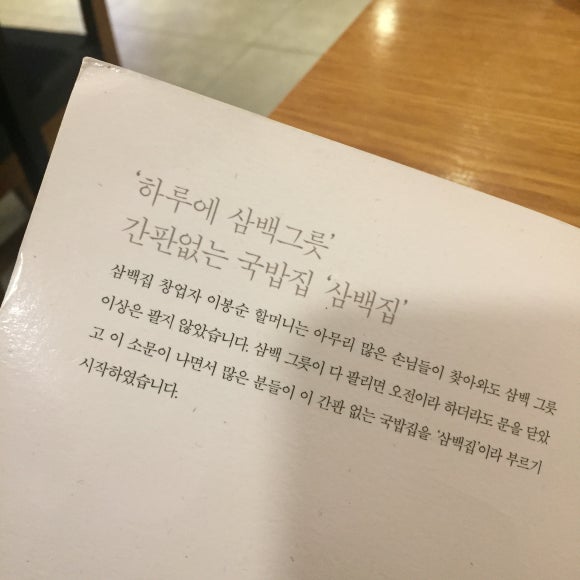 '하루에 삼백그릇'
간판없는 국밥집 '삼백집'
삼백집 창업자 이봉순 할머니는 아무리 많은 손님들이 찾아와도 삼백 그릇
이상은 팔지 않았습니다. 삼백 그릇이 다 팔리면 오전이라 하더라도 문을 닫았
고 이 소문이 나면서 많은 분들이 이 간판 없는 국밥집을 '삼백집'이라 부르기
시작하였습니다.